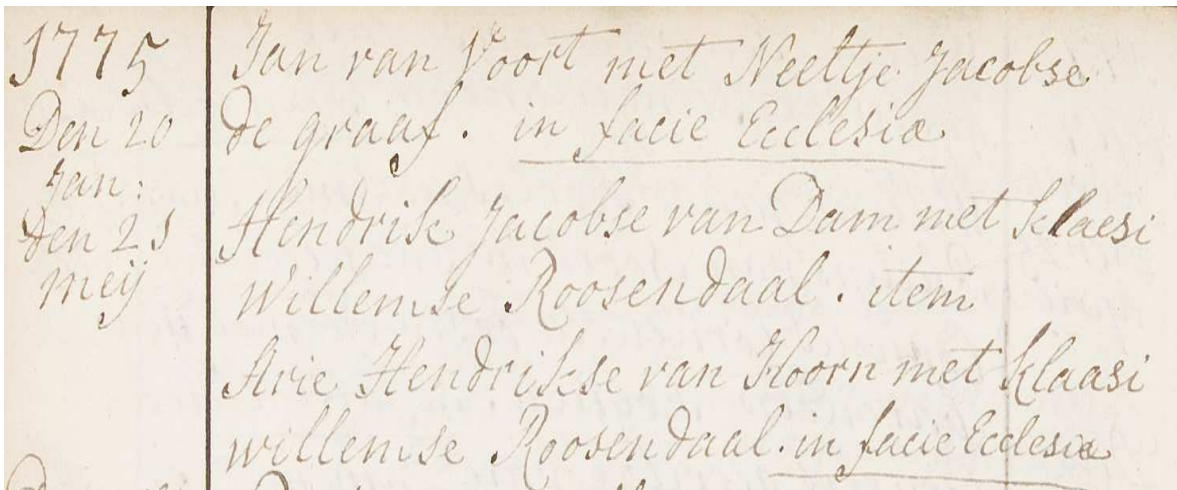 1775
Den 20
Jan:
Den 21
meij
Jan van Voort met Neeltje Jacobse
de graaf. in facie Ecclesiæ
Hendrik Jacobse van Dam met klaesi
willemse Roosendaal. item
Arie Hendrikse van Hoorn met klaasi
willemse Roosendaal. in facie Ecclesiæ